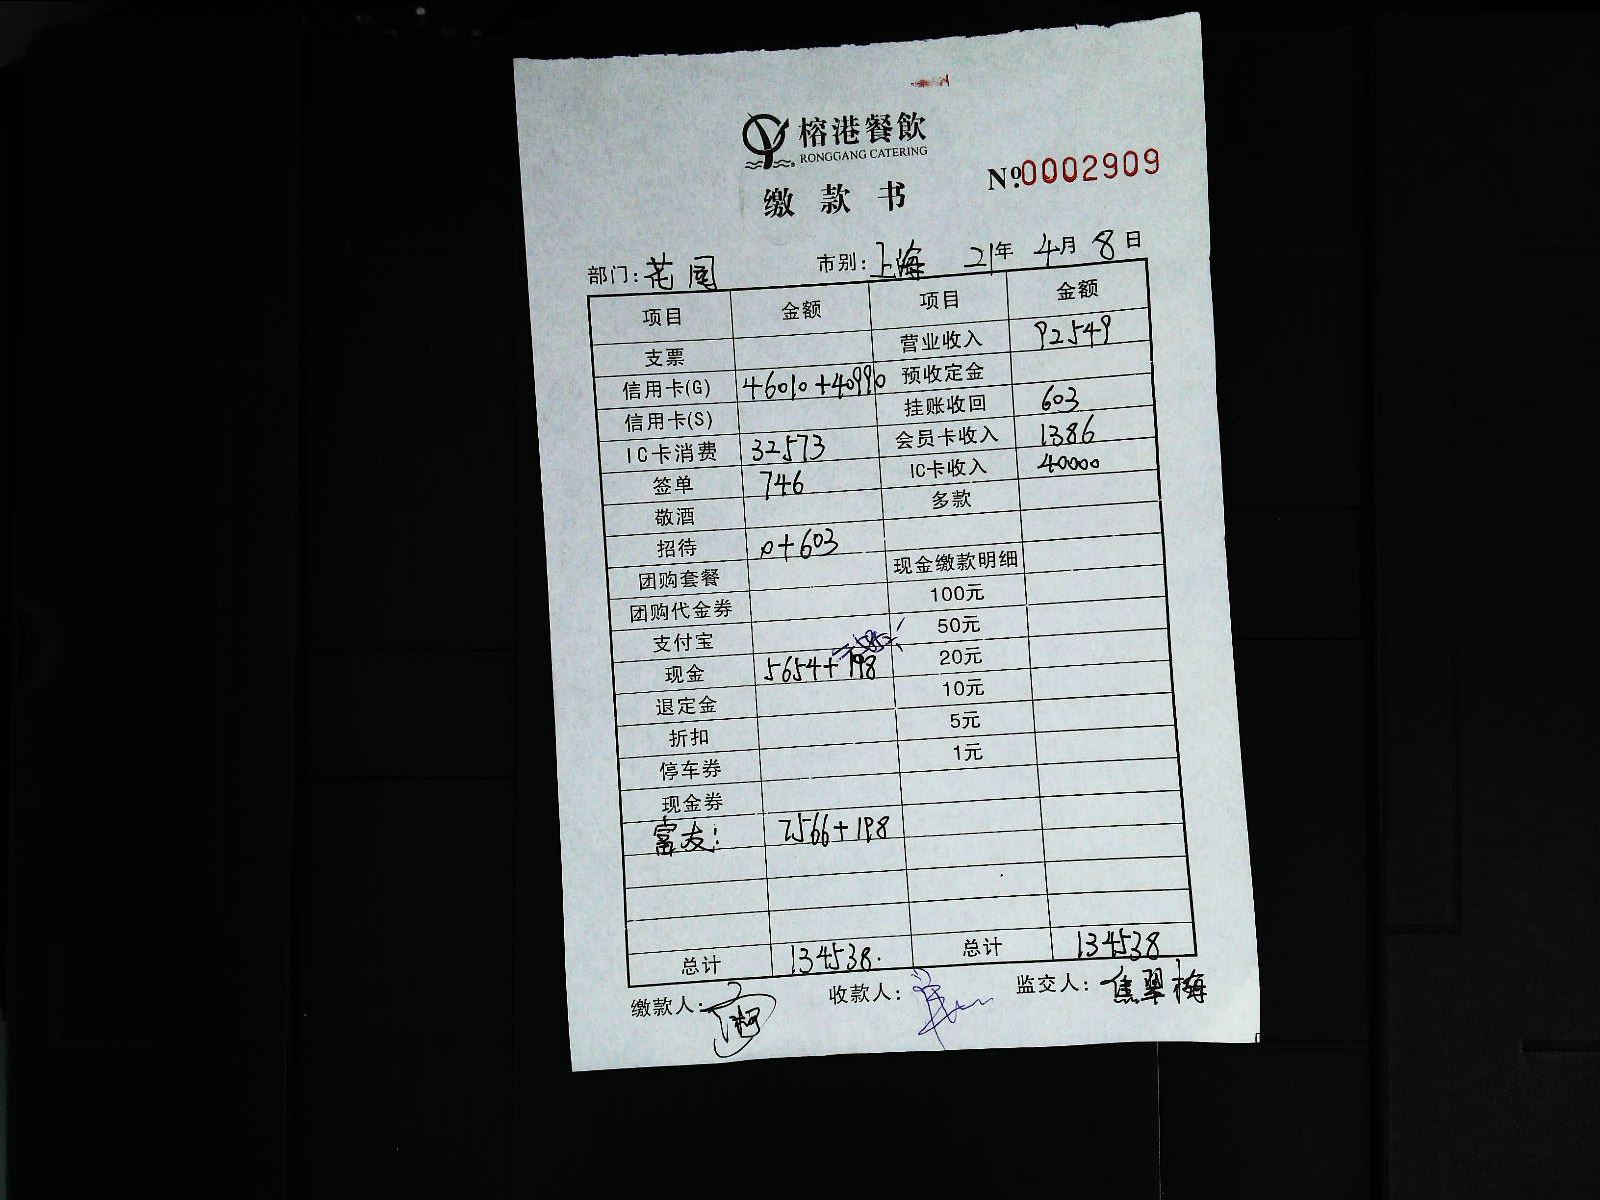 榕港餐飲
RONGGANG CATERING
№0002909
缴款书
部门:花园 市别:上海 21年4月8日
项目 金额 项目 金额
支票 营业收入 92549
信用卡(G) 46010+40990 预收定金
信用卡(S) 挂账收回 603
IC卡消费 32573 会员卡收入 1386
签单 746 IC卡收入 40000
敬酒 多款
招待 0+603
团购套餐 现金缴款明细
团购代金券 100元
支付宝 50元
现金 5654+198 20元
退定金 10元
折扣 5元
停车券 1元
现金券
富友: 7566+198
总计 134538. 总计 134538
缴款人: 收款人: 监交人:焦翠梅